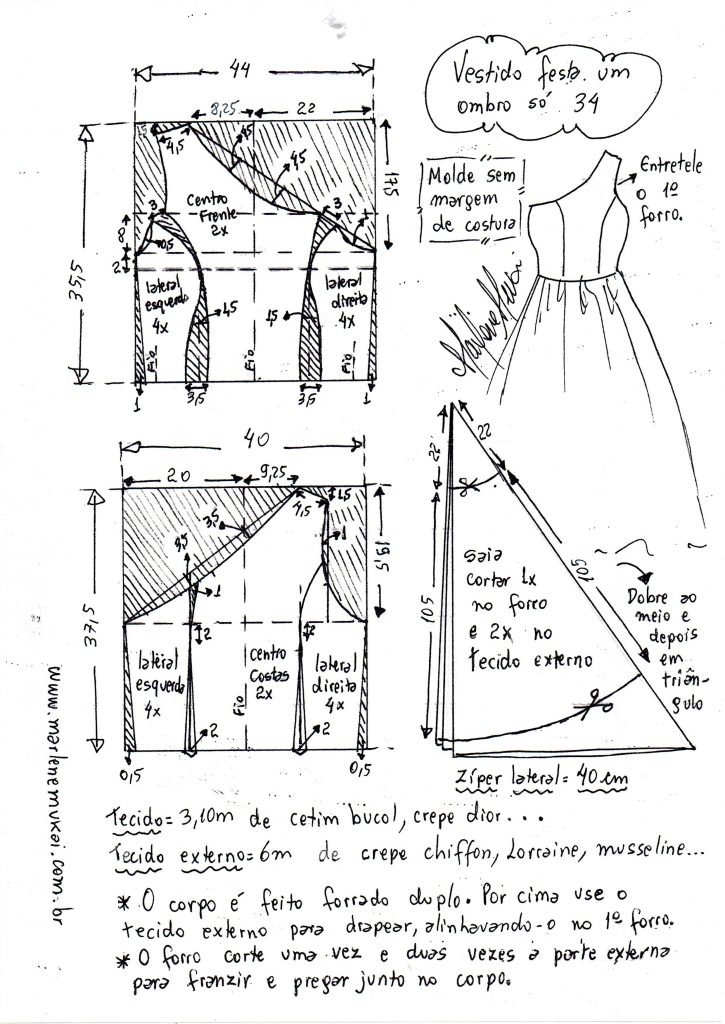 Vestido festa um
ombro só 34
Molde sem
margem
de costura
Entretele
o 1º
forro.
44
8,25
22
1,5
4,5
4,5
4,5
17,5
35,5
3
3
1
8
0,5
2
Centro
Frente
2x
lateral
esquerda
4x
lateral
direita
4x
1,5
1,5
Fio
Fio
Fio
1
3,5
3,5
1
40
20
9,25
3,5
3,5
4,5
1,5
1
1
19,5
37,5
2
2
lateral
esquerda
4x
Centro
Costas
2x
lateral
direita
4x
Fio
2
2
0,5
0,5
22
22
105
105
saia
cortar 1x
no forro
e 2x no
tecido externo
Dobre ao
meio e
depois
em
triân-
gulo
Zíper lateral = 40 cm
www.marlenemukai.com.br
Tecido = 3,10m de cetim bucol, crepe dior...
Tecido externo = 6m de crepe chiffon, Lorraine, musseline...
* O corpo é feito forrado duplo. Por cima use o
tecido externo para drapear, alinhavando-o no 1º forro.
* O forro corte uma vez e duas vezes a parte externa
para franzir e pregar junto no corpo.